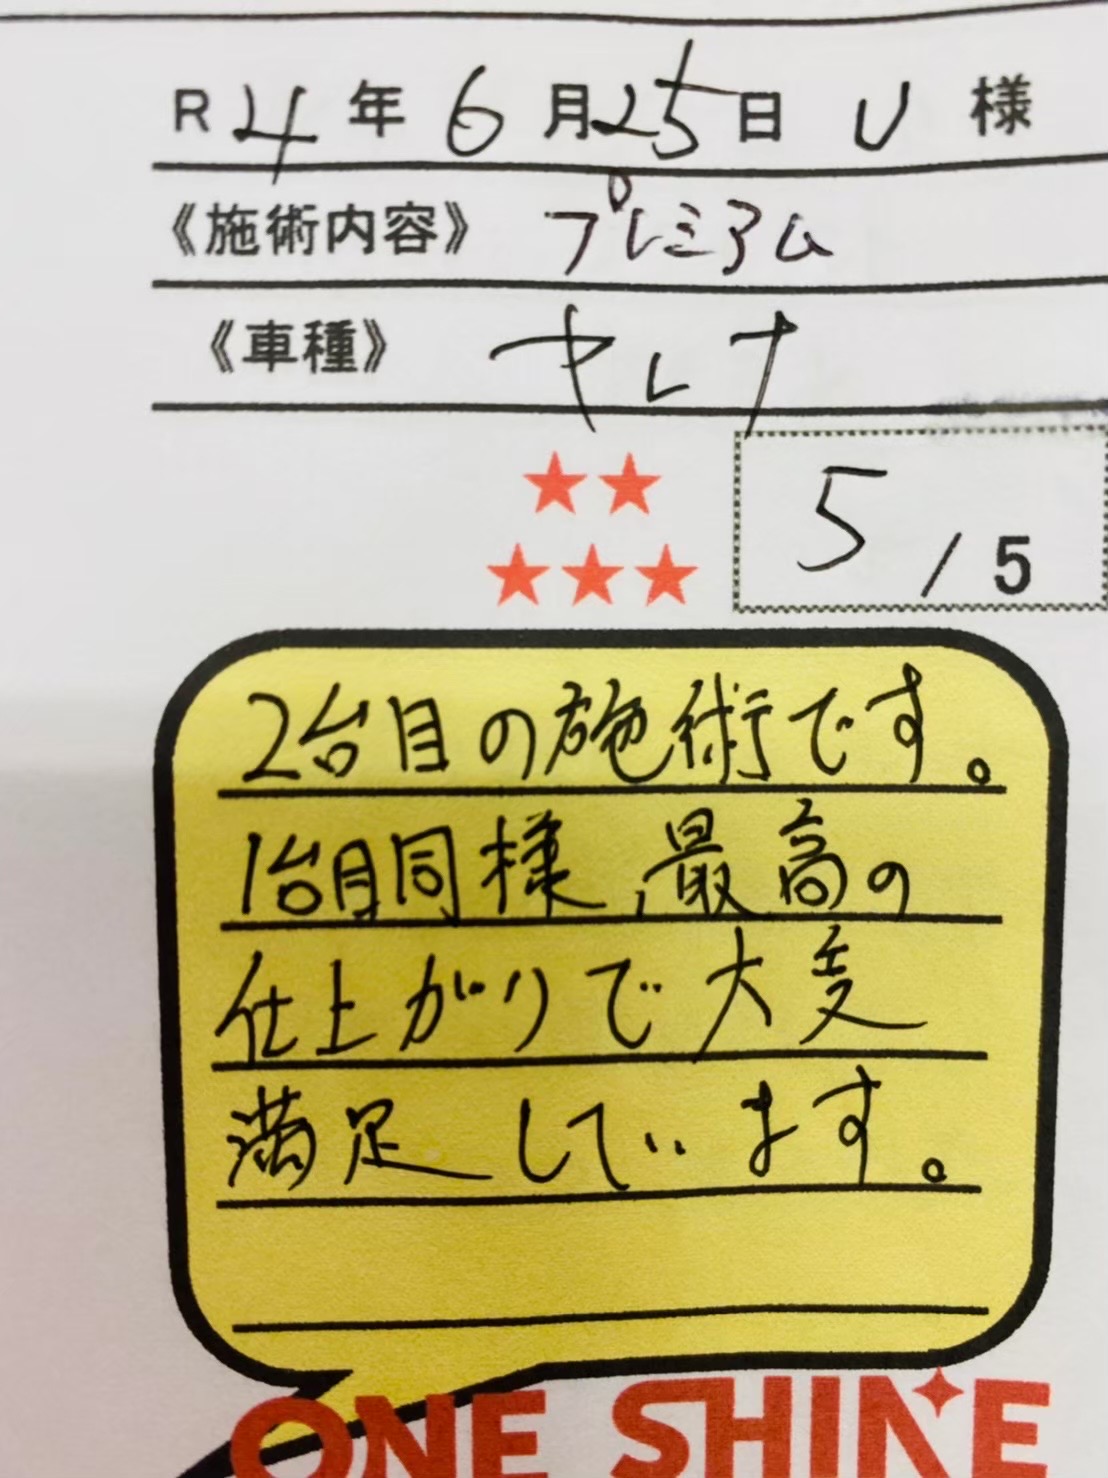 R 4 年 6 月 25 日 U 様
《施術内容》 プレミアム
《車種》 セレナ
★★
★★★
5 / 5
2台目の施術です。
1台目同様、最高の
仕上がりで大変
満足しています。
ONE SHINE